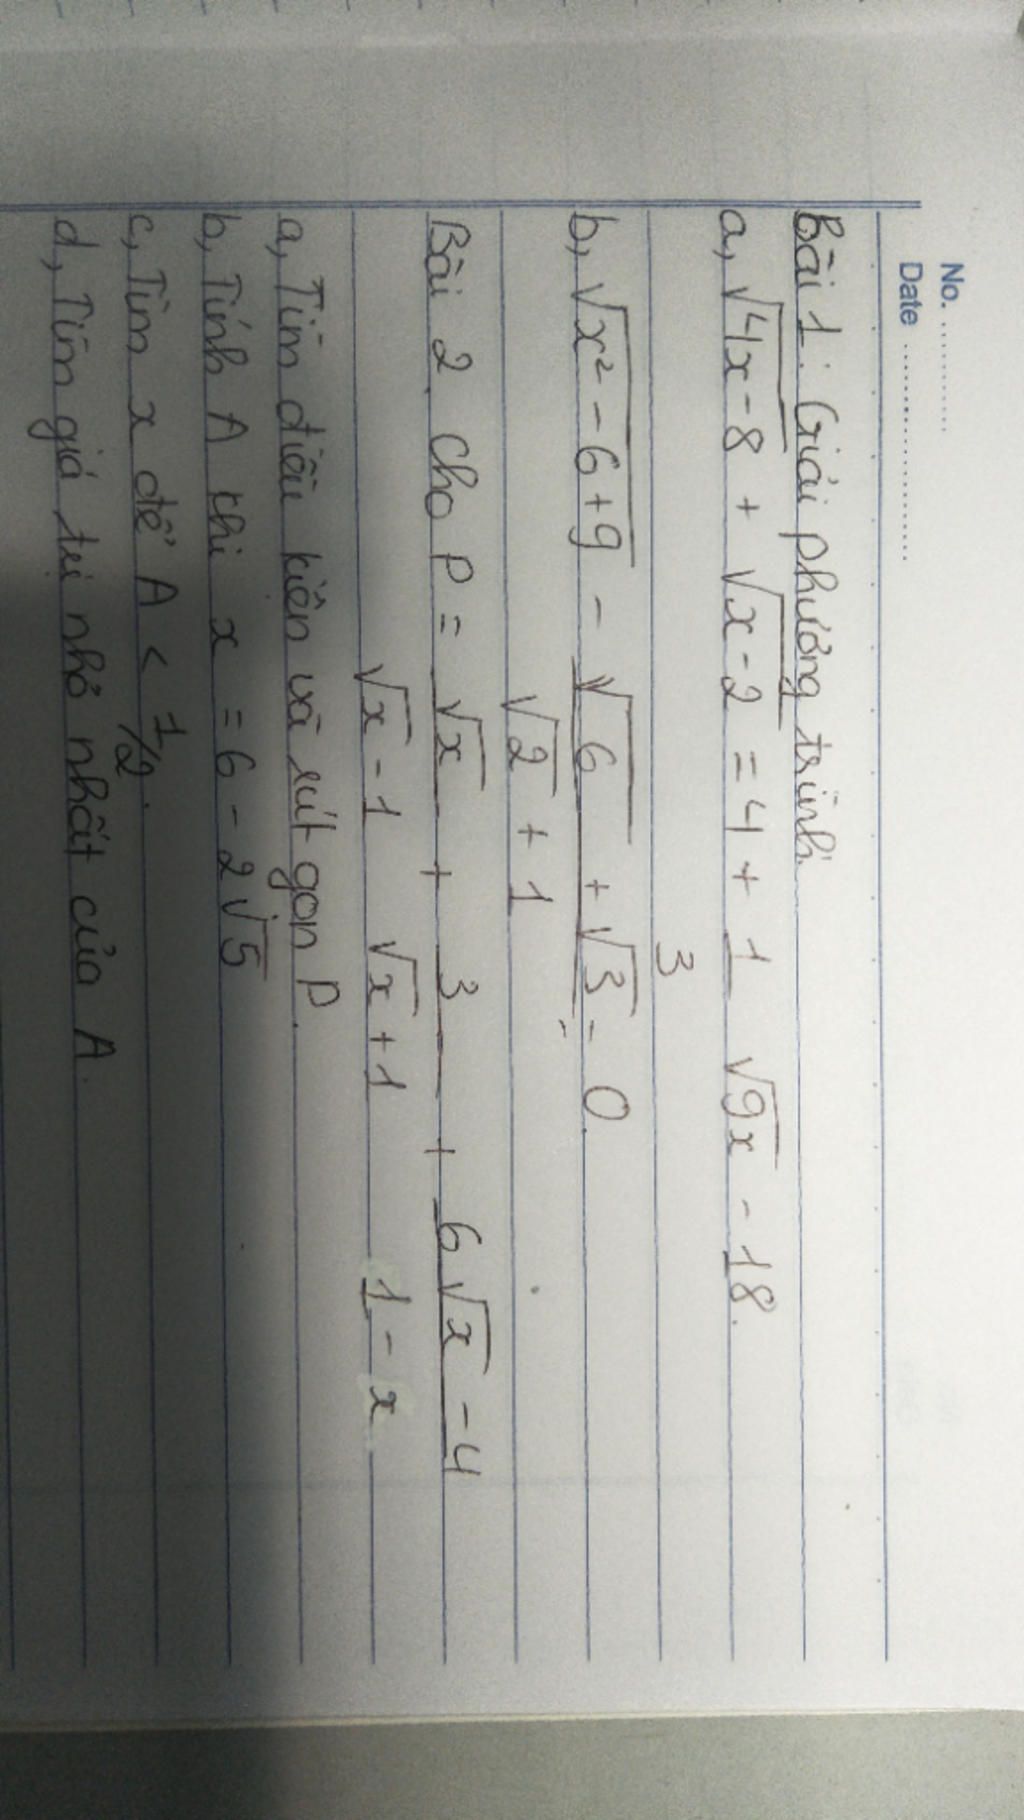 No. ............
Date ........................
Bài 1: Giải phương trình.
a, √4x-8 + √x-2 = 4 + 1 √9x - 18.
3
b, √x² - 6+9 - √6 + √3 = 0.
√2 + 1
Bài 2. Cho P = √x + 3 + 6√x - 4
√x - 1 √x + 1 1 - x
a, Tìm điều kiện và rút gọn P.
b, Tính A khi x = 6 - 2√5
c, Tìm x để A < 1/2.
d, Tìm giá trị nhỏ nhất của A.